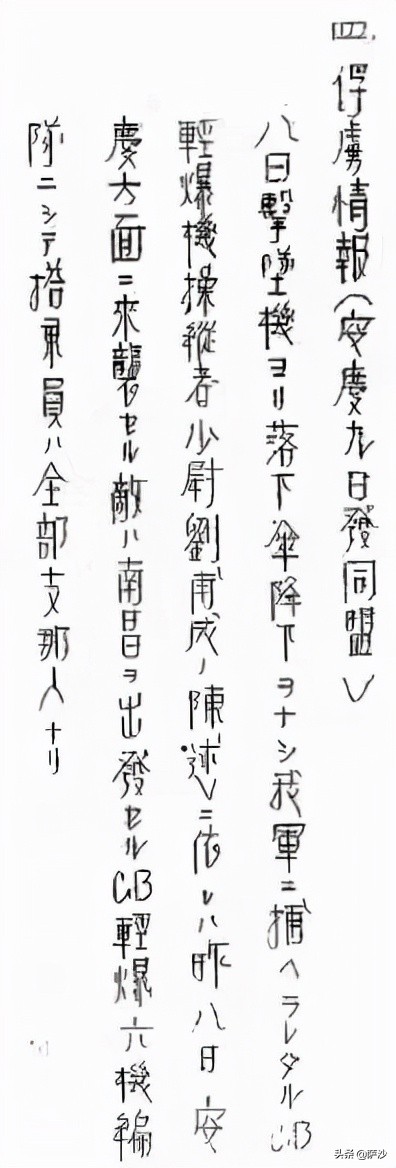 四、俘虜情報(安慶九日發同盟)
八日擊墜機ヨリ落下傘降下ヲナシ我軍ニ捕ヘラレタルCB
輕爆機操縱者少尉劉甫成ノ陳述ニ依レハ昨八日安
慶方面ニ來襲セル敵ハ南昌ヲ出發セルCB輕爆六機編
隊ニシテ搭乘員ハ全部支那人ナリ
头条@萨沙